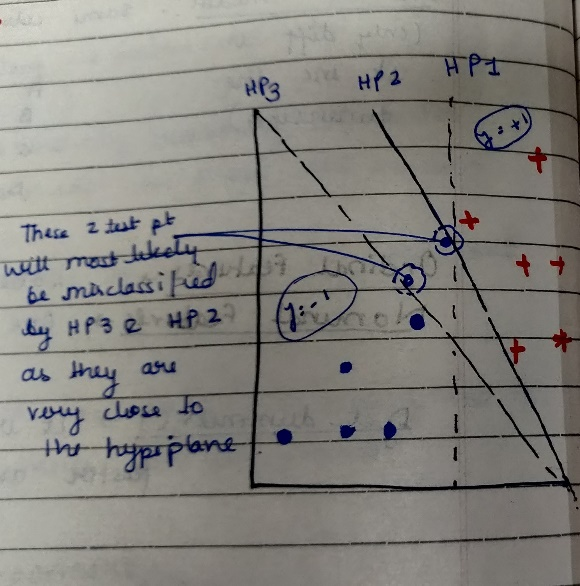 HP3 HP2 HP1
y = +1
These 2 test pt
will most likely
be misclassified
by HP3 & HP2
as they are
very close to
the hypeplane
y = -1